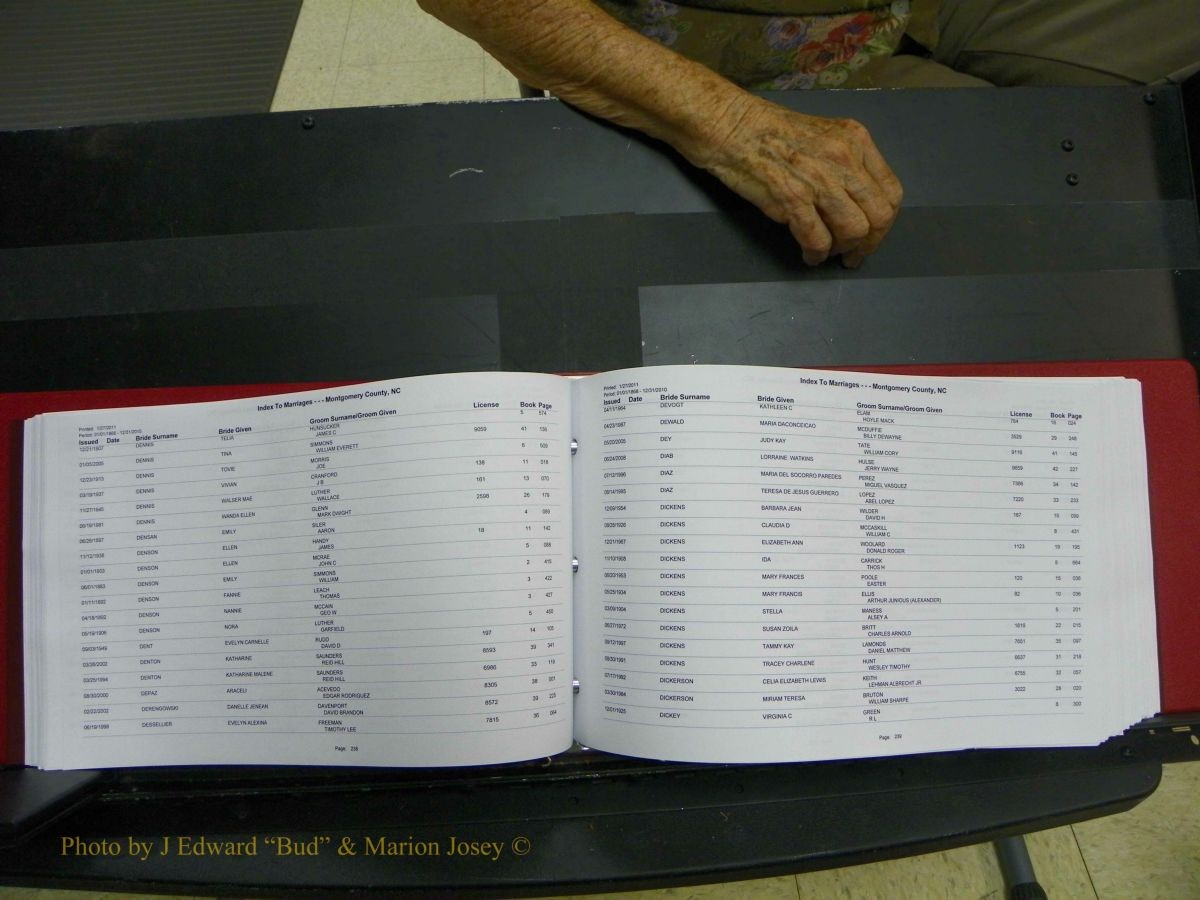 Index To Marriages - - - Montgomery County, NC
Printed: 1/27/2011
Issued Date Bride Surname Bride Given Groom Surname/Groom Given License Book Page
12/21/1907 DENNIS TELIA HUNSUCKER 5 574
JAMES C
01/05/2005 DENNIS TINA SIMMONS 9059 41 136
WILLIAM EVERETT
12/23/1913 DENNIS TOVIE MORRIS 6 509
JOE
03/19/1937 DENNIS VIVIAN CRANFORD 138 11 018
J B
11/27/1945 DENNIS WALSER MAE LUTHER 161 13 070
WALLACE
06/19/1981 DENNIS WANDA ELLEN GLENN 2598 26 179
MARK DWIGHT
DENSAN EMILY SILER 4 089
AARON
11/12/1938 DENSON ELLEN HANDY 18 11 142
JAMES
01/01/1903 DENSON ELLEN MCRAE 5 088
JOHN C
DENSON EMILY SIMMONS 2 415
WILLIAM
01/11/1892 DENSON FANNIE LEACH 3 422
THOMAS
04/18/1892 DENSON NANNIE MCCAIN 3 427
GEO W
05/19/1906 DENSON NORA LUTHER 5 450
GARFIELD
09/03/1949 DENT EVELYN CARNELLE RUDD 197 14 105
DAVID D
03/26/2002 DENTON KATHARINE SAUNDERS 8593 39 341
REID HILL
03/25/1994 DENTON KATHARINE MALENE SAUNDERS 6986 33 119
REID HILL
08/30/2000 DEPAZ ARACELI ACEVEDO 8305 38 001
EDGAR RODRIGUEZ
02/22/2002 DERENGOWSKI DANELLE JENEAN DAVENPORT 8572 39 223
DAVID BRANDON
06/19/1998 DESSELLIER EVELYN ALEXINA FREEMAN 7815 36 064
TIMOTHY LEE
Page: 238
Index To Marriages - - - Montgomery County, NC
Printed: 1/27/2011
Issued Date Bride Surname Bride Given Groom Surname/Groom Given License Book Page
04/11/1964 DEVOGT KATHLEEN C ELAM 764 18 024
HOYLE MACK
04/23/1987 DEWALD MARIA DACONCEICAO MCDUFFIE 3529 29 248
BILLY DEWAYNE
05/20/2005 DEY JUDY KAY TATE 9116 41 145
WILLIAM CORY
06/24/2008 DIAB LORRAINE WATKINS HULSE 9659 42 227
JERRY WAYNE
07/12/1996 DIAZ MARIA DEL SOCORRO PAREDES PEREZ 7386 34 142
MIGUEL VASQUEZ
08/14/1995 DIAZ TERESA DE JESUS GUERRERO LOPEZ 7220 33 233
ABEL LOPEZ
12/09/1954 DICKENS BARBARA JEAN WILDER 167 16 099
DAVID H
09/26/1926 DICKENS CLAUDIA D MCCASKILL 8 431
WILLIAM C
12/21/1967 DICKENS ELIZABETH ANN WOOLARD 1123 19 195
DONALD ROGER
11/10/1908 DICKENS IDA CARRICK 664
THOS H
06/20/1953 DICKENS MARY FRANCES POOLE 120 15 036
EASTER
05/25/1934 DICKENS MARY FRANCIS ELLIS 82 10 036
ARTHUR JUNIOUS (ALEXANDER)
03/09/1904 DICKENS STELLA MANESS 5 201
ALSEY A
05/27/1972 DICKENS SUSAN ZOILA BRITT 1616 22 015
CHARLES ARNOLD
09/12/1997 DICKENS TAMMY KAY LAMONDS 7651 35 097
DANIEL MATTHEW
09/30/1991 DICKENS TRACEY CHARLENE HUNT 6637 31 218
WESLEY TIMOTHY
07/17/1992 DICKERSON CELIA ELIZABETH LEWIS KEITH 6755 32 057
LEHMAN ALBRECHT JR
03/30/1984 DICKERSON MIRIAM TERESA BRUTON 3022 28 020
WILLIAM SHARPE
12/01/1925 DICKEY VIRGINIA C GREEN 8 300
R L
Page: 239
Photo by J Edward “Bud” & Marion Josey ©